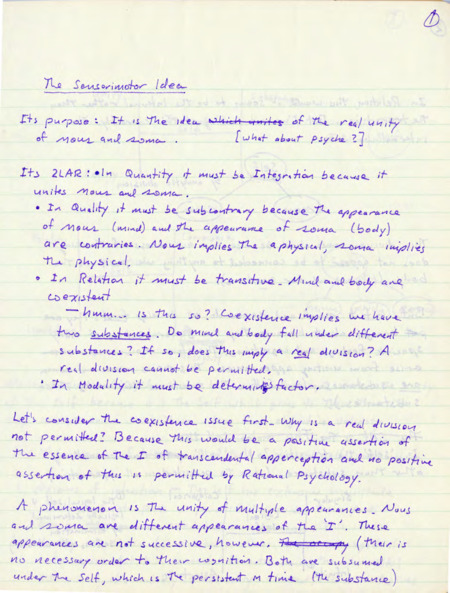 1
The Sensorimotor Idea
Its purpose: It is the idea which unites of the real unity
of nous and soma. [what about psyche?]
Its 2LAR: • In Quantity it must be Integration because it
unites nous and soma.
• In Quality it must be subcontrary because the appearance
of nous (mind) and the appearance of soma (body)
are contraries. Nous implies the aphysical, soma implies
the physical.
• In Relation it must be transitive. Mind and body are
coexistent
— hmm... is this so? Coexistence implies we have
two substances. Do mind and body fall under different
substances? If so, does this imply a real division? A
real division cannot be permitted.
• In Modality it must be determining factor.
Let's consider the coexistence issue first. Why is a real division
not permitted? Because this would be a positive assertion of
the essence of the I of transcendental apperception and no positive
assertion of this is permitted by Rational Psychology.
A phenomenon is the unity of multiple appearances. Nous
and soma are different appearances of the 'I'. These
appearances are not successive, however. The occupy (their is
no necessary order to their cognition. Both are subsumed
under the Self, which is the persistent in time (the substance)